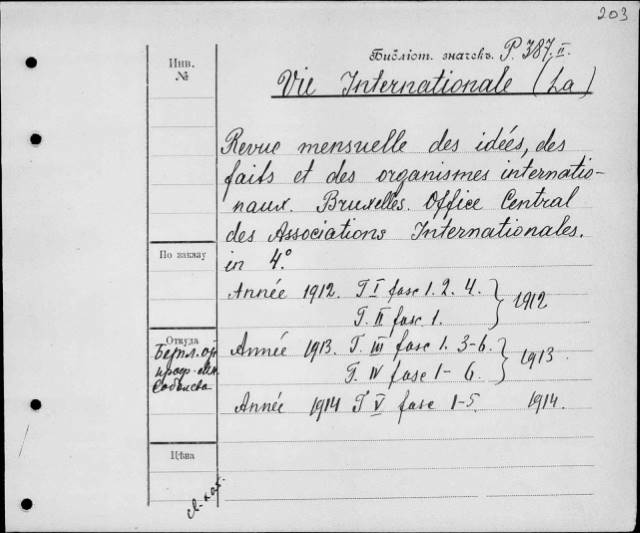 203
Библіот. значекъ. P. 387.II.
Vie Internationale (La)
Инв.
№
Revue mensuelle des idées, des
faits et des organismes internatio-
naux. Bruxelles. Office Central
des Associations Internationales.
in 4°.
По заказу
Année 1912. T. I fasc 1. 2. 4. } 1912
T. II fasc 1.
Откуда
Année 1913. T. III fasc 1. 3-6. } 1913.
T. IV fasc 1-6.
Année 1914 T V fasc 1-5. 1914.
Цѣна